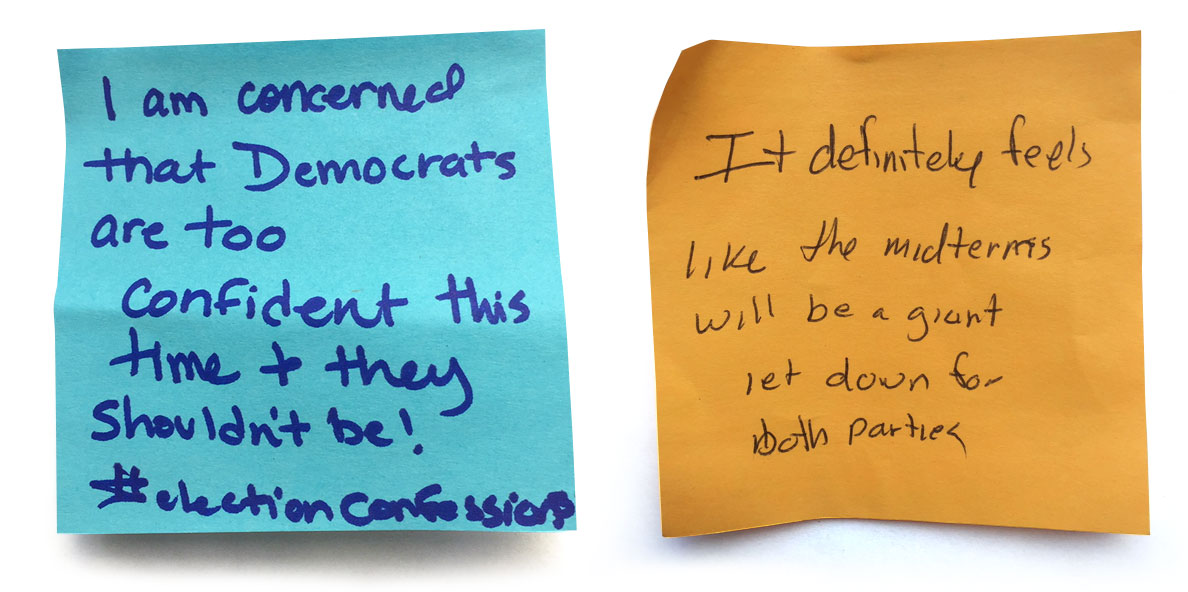 I am concerned
that Democrats
are too
confident this
time + they
shouldn't be!
#electionconfessions
It definitely feels
like the midterms
will be a giant
let down for
both parties